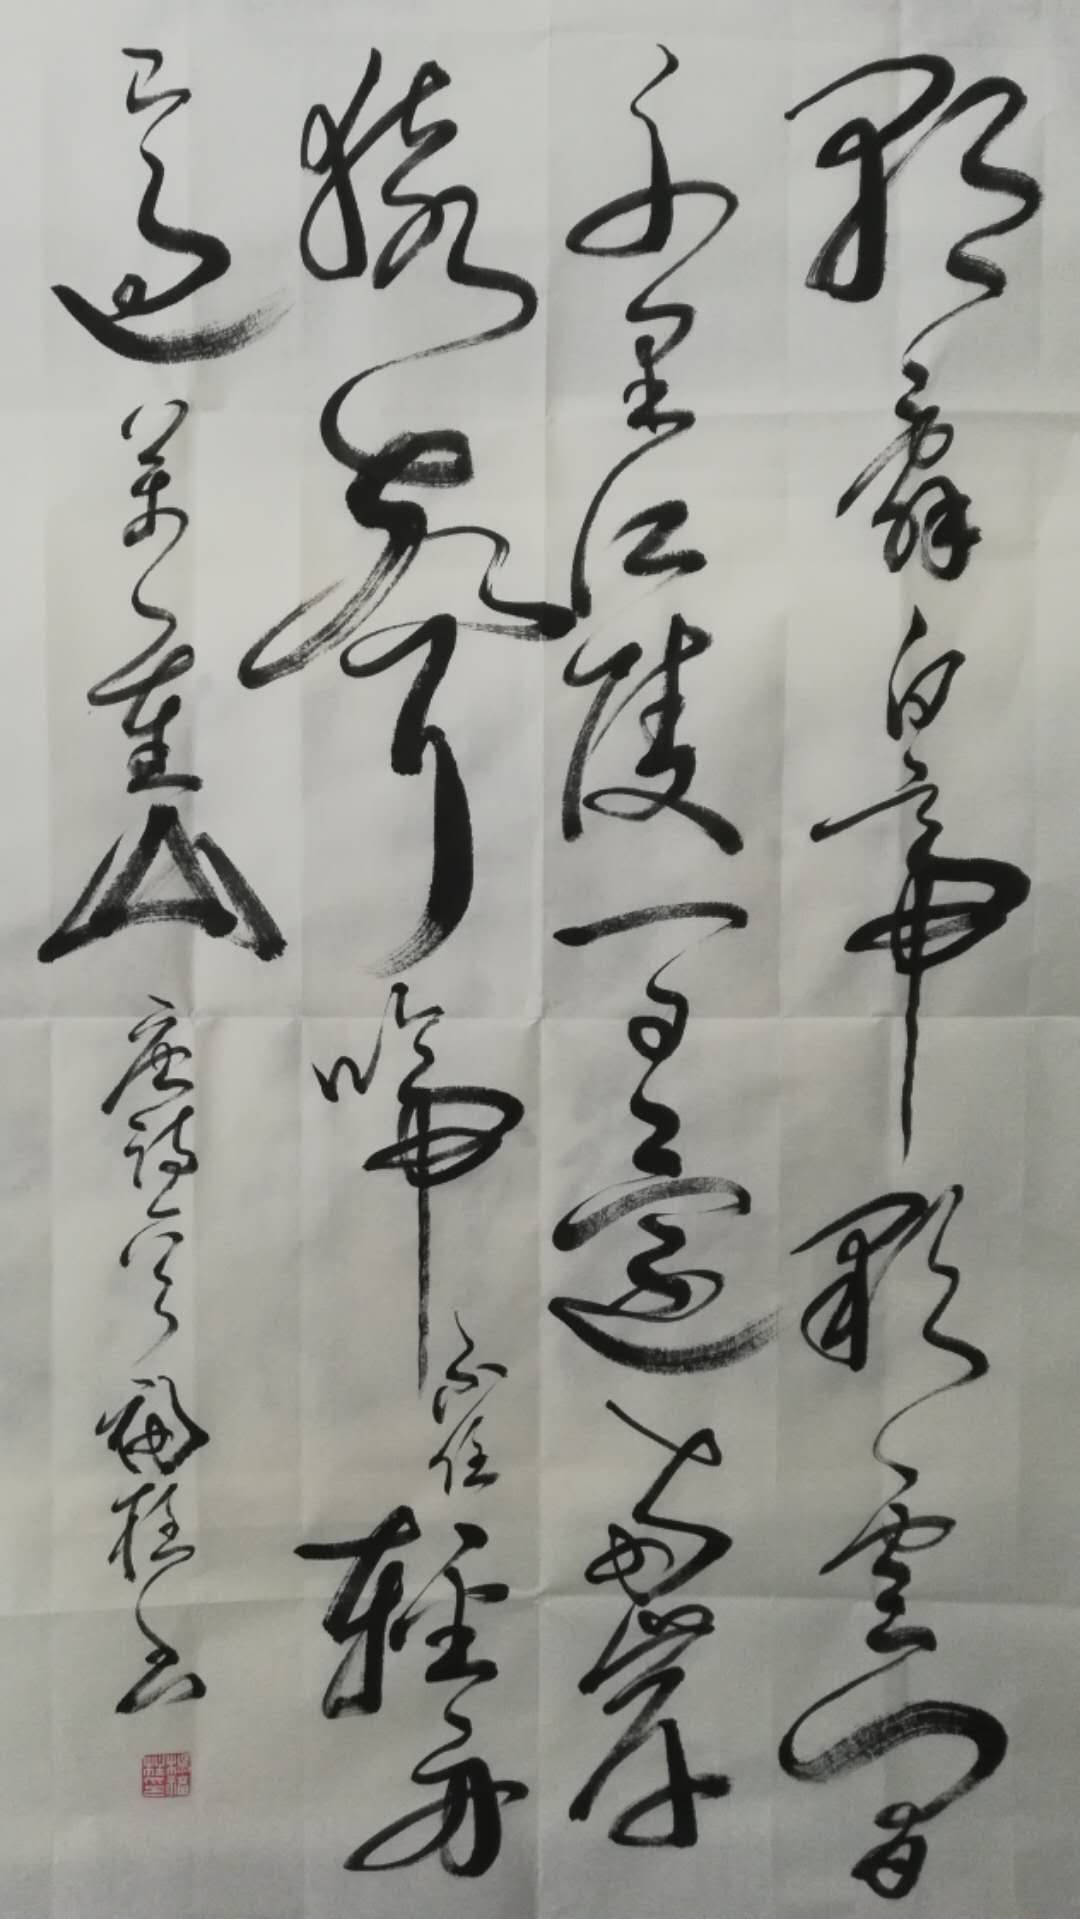 朝辭白帝彩雲間
千里江陵一日還兩岸
猿聲啼不住輕舟
已過萬重山 唐詩一首 福柱書